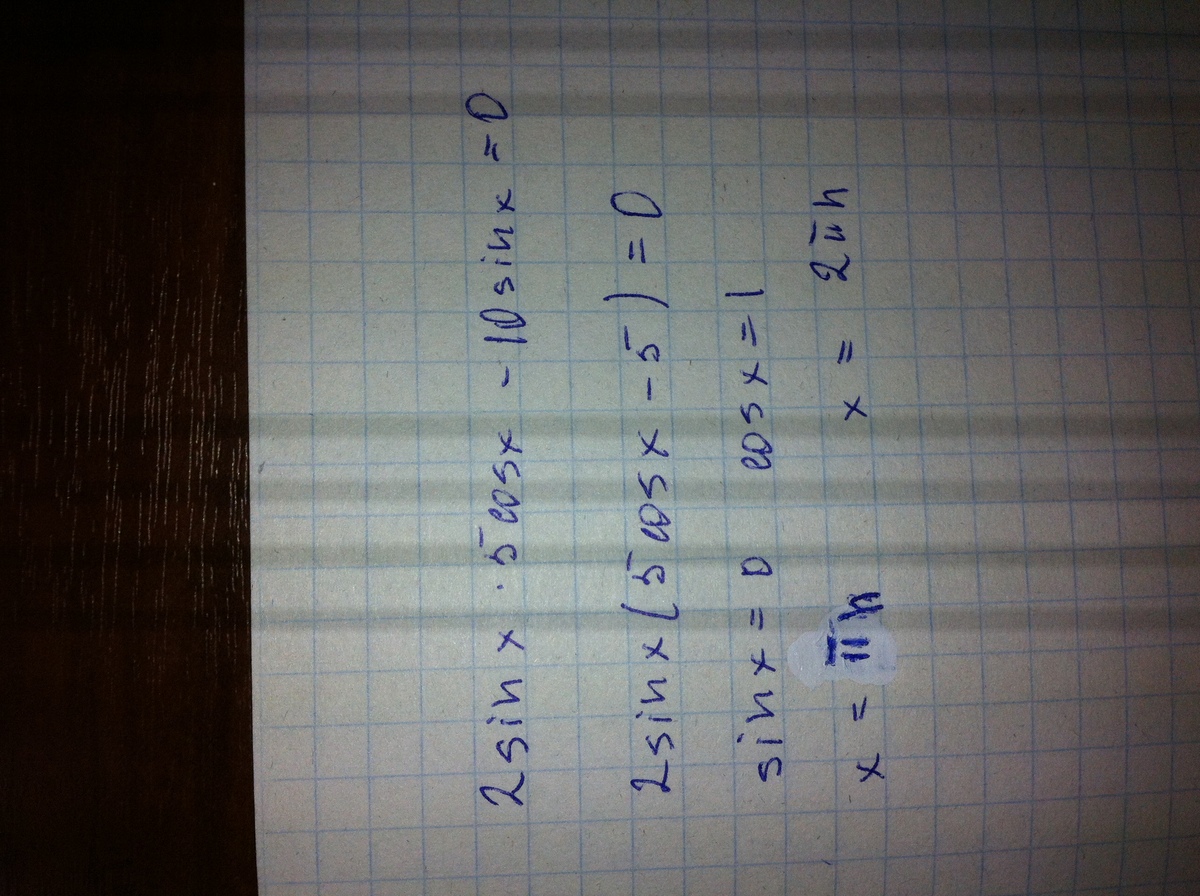 2sinx · 5cosx - 10sinx = 0
2sinx(5cosx - 5) = 0
sinx = 0 cosx = 1
x = πn x = 2πn